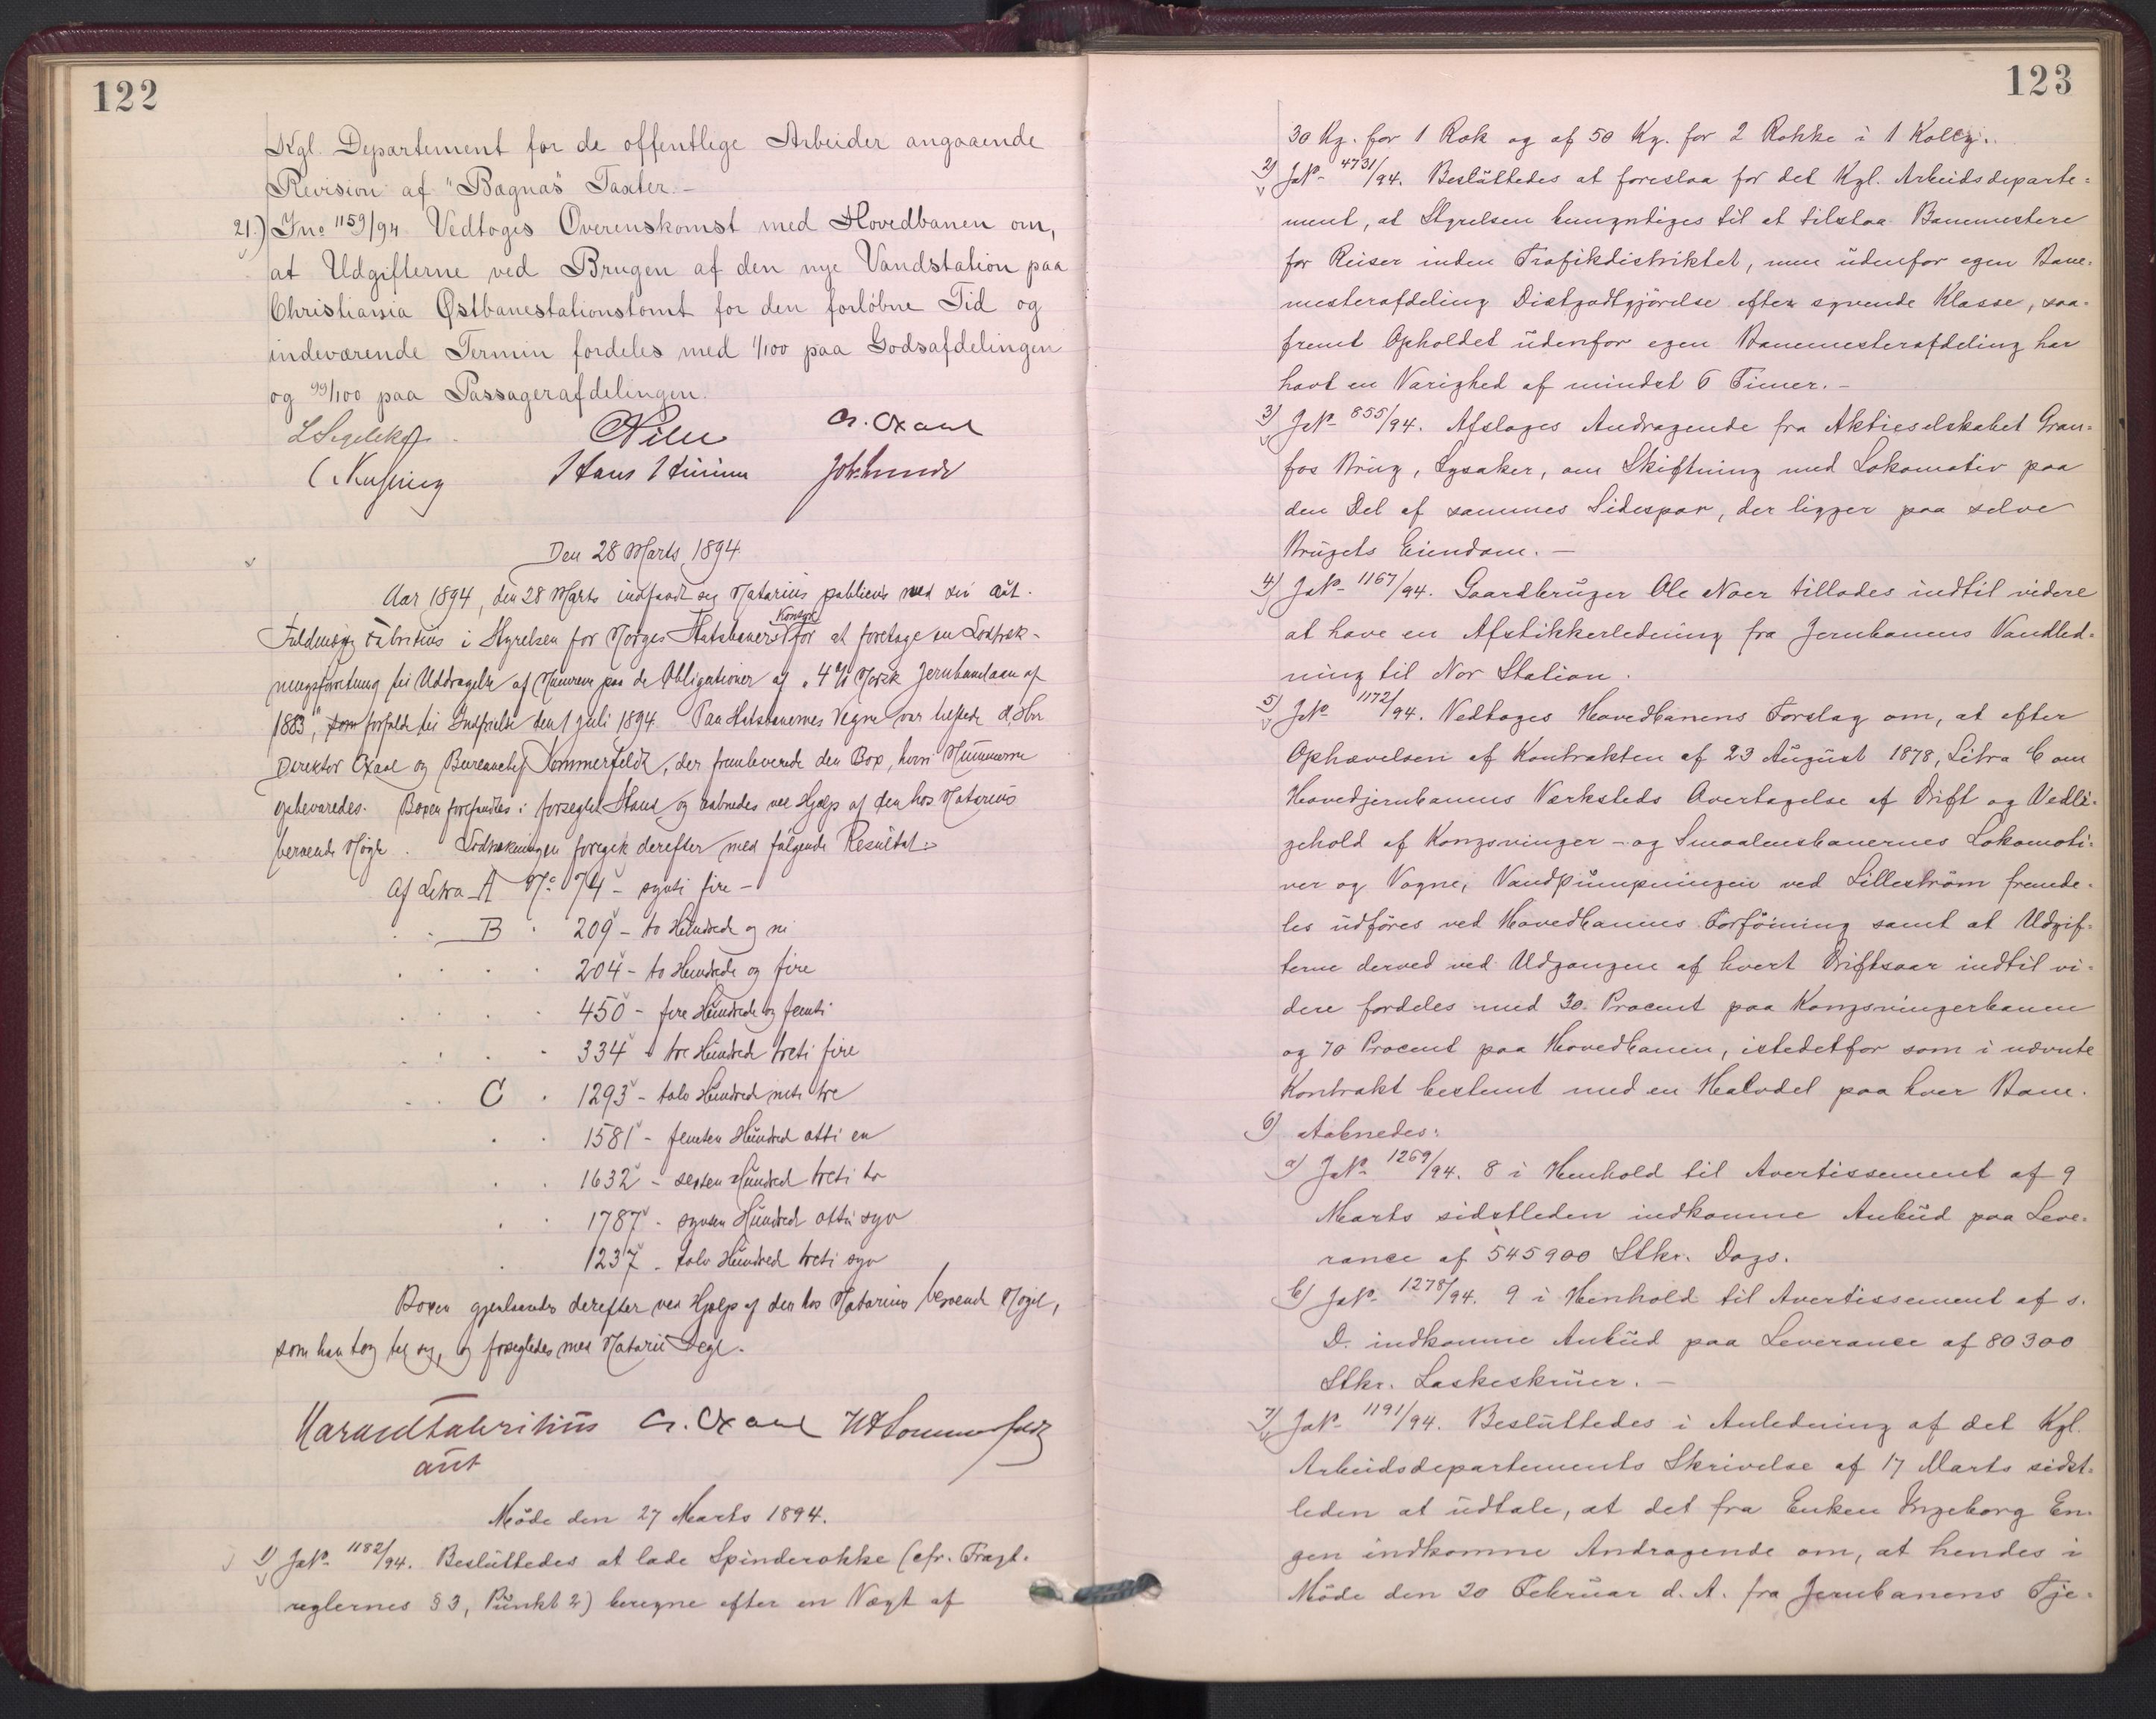 122
Kgl. Departement for de offentlege Arbeider angaaende
Revision af "Bagnas" Taxter.-
21.) Jno 1159/94 Vedtoges Overenskomst med Hovedbanen om,
at Udgifterne ved Brugen af den nye Vandstation paa
Christiania Østbanestationstomt for den forløbne Tid og
indeværende Termin fordeles med 1/100 paa Godsafdelingen
og 99/100 paa Passagerafdelingen.
Den 28 Marts 1894.
Aar 1894, den 28 Marts indfandt sig Notarius publicus ved sin aut.
Fuldmægtig Fabritius i Styrelsen for Norges Statsbaners Kontor for at foretage en Lodtræk-
ningsforretning til Uddragelse af Numrene paa de Obligationer af "4 % Norsk Jernbanelaan af
1883", som forfalde til Indfrielse den 1 Juli 1894. Paa Statsbanernes Vegne var tilstede d'Hrr
Direktør Oxaal og Bureauchef Sommerfeldt, der fremleverede den Box, hvori Numrene
opbevaredes. Boxen forefandtes i forseglet Stand og aabnedes ved Hjælp af den hos Notarius
beroende Nøgle. Lodtrækningen foregik derefter med følgende Resultat:
Af Litra A No 74 - sytti fire -
B 209 - to Hundrede og ni
204 - to Hundrede og fire
450 - fire Hundrede og femti
334 - tre Hundrede treti fire
C 1293 - tolv Hundred nitti tre
1581 - femten Hundred otti en
1632 - sexten Hundred treti to
1787 - sytten Hundred otti syv
1237 - tolv Hundred treti syv
Boxen gjenlaasedes derefter ved Hjælp af den hos Notarius beroende Nøgel,
som han tog til sig, og forsegledes med Notarii Segl.
Harald Fabritius Cr. Oxaal HA Sommerfeldt
aut
Møde den 27 Marts 1894.
1) JNo 1182/94. Besluttedes at lade Spinderokke (cfr. Fragt-
reglernes § 3, Punkt 2) beregne efter en Vægt af
123
30 Kg. for 1 Rok og af 50 Kg. for 2 Rokke i 1 Kolly.
2) JNo 4731/94. Besluttedes at foreslaa for det Kgl. Arbeidsdeparte-
ment, at Styrelsen bemyndiges til at tilstaa Banemestere
for Reiser inden Trafikdistriktet, men udenfor egen Bane-
mesterafdeling Diætgodtgjørelse efter syvende Klasse, saa-
fremt Opholdet udenfor egen Banemesterafdeling har
havt en Varighed af mindst 6 Timer. -
3) JNo 855/94. Afsloges Andragende fra Aktieselskabet Gran-
fos Brug, Lysaker, om Skiftning med Lokomotiv paa
den Del af sammes Sidespor, der ligger paa selve
Brugets Eiendom. -
4) JNo 1167/94. Gaardbruger Ole Noer tillodes indtil videre
at have en Afstikkerledning fra Jernbanens Vandled-
ning til Nor Station.
5) JNo 1172/94. Vedtoges Hovedbanens Forslag om, at efter
Ophævelsen af Kontrakten af 23 August 1878, Litra C om
Hovedjernbanens Værksteds Overtagelse af Drift og Vedli-
gehold af Kongsvinger- og Smaalensbanernes Lokomoti-
ver og Vogne, Vandpumpningen ved Lillestrøm fremde-
les udføres ved Hovedbanens Forføining samt at Udgif-
terne derved ved Udgangen af hvert Driftsaar indtil vi-
dere fordeles med 30 Procent paa Kongsvingerbanen
og 70 Procent paa Hovedbanen, istedetfor som i nævnte
Kontrakt bestemt med en Halvdel paa hver Bane.
6) Aabnedes:
a) JNo 1269/94. 8 i Henhold til Avertissement af 9
Marts sidstleden indkomne Anbud paa Leve-
rance af 545900 Stkr. Dogs.
b) JNo 1278/94. 9 i Henhold til Avertissement af s.
D. indkomne Anbud paa Leverance af 80300
Stkr. Laskeskruer. -
7) JNo 1191/94. Besluttedes i Anledning af det Kgl.
Arbeidsdepartements Skrivelse af 17 Marts sidst-
leden at udtale, at det fra Enken Ingeborg En-
gen indkomne Andragende om, at hendes i
Møde den 20 Februar d. A. fra Jernbanens Tje-